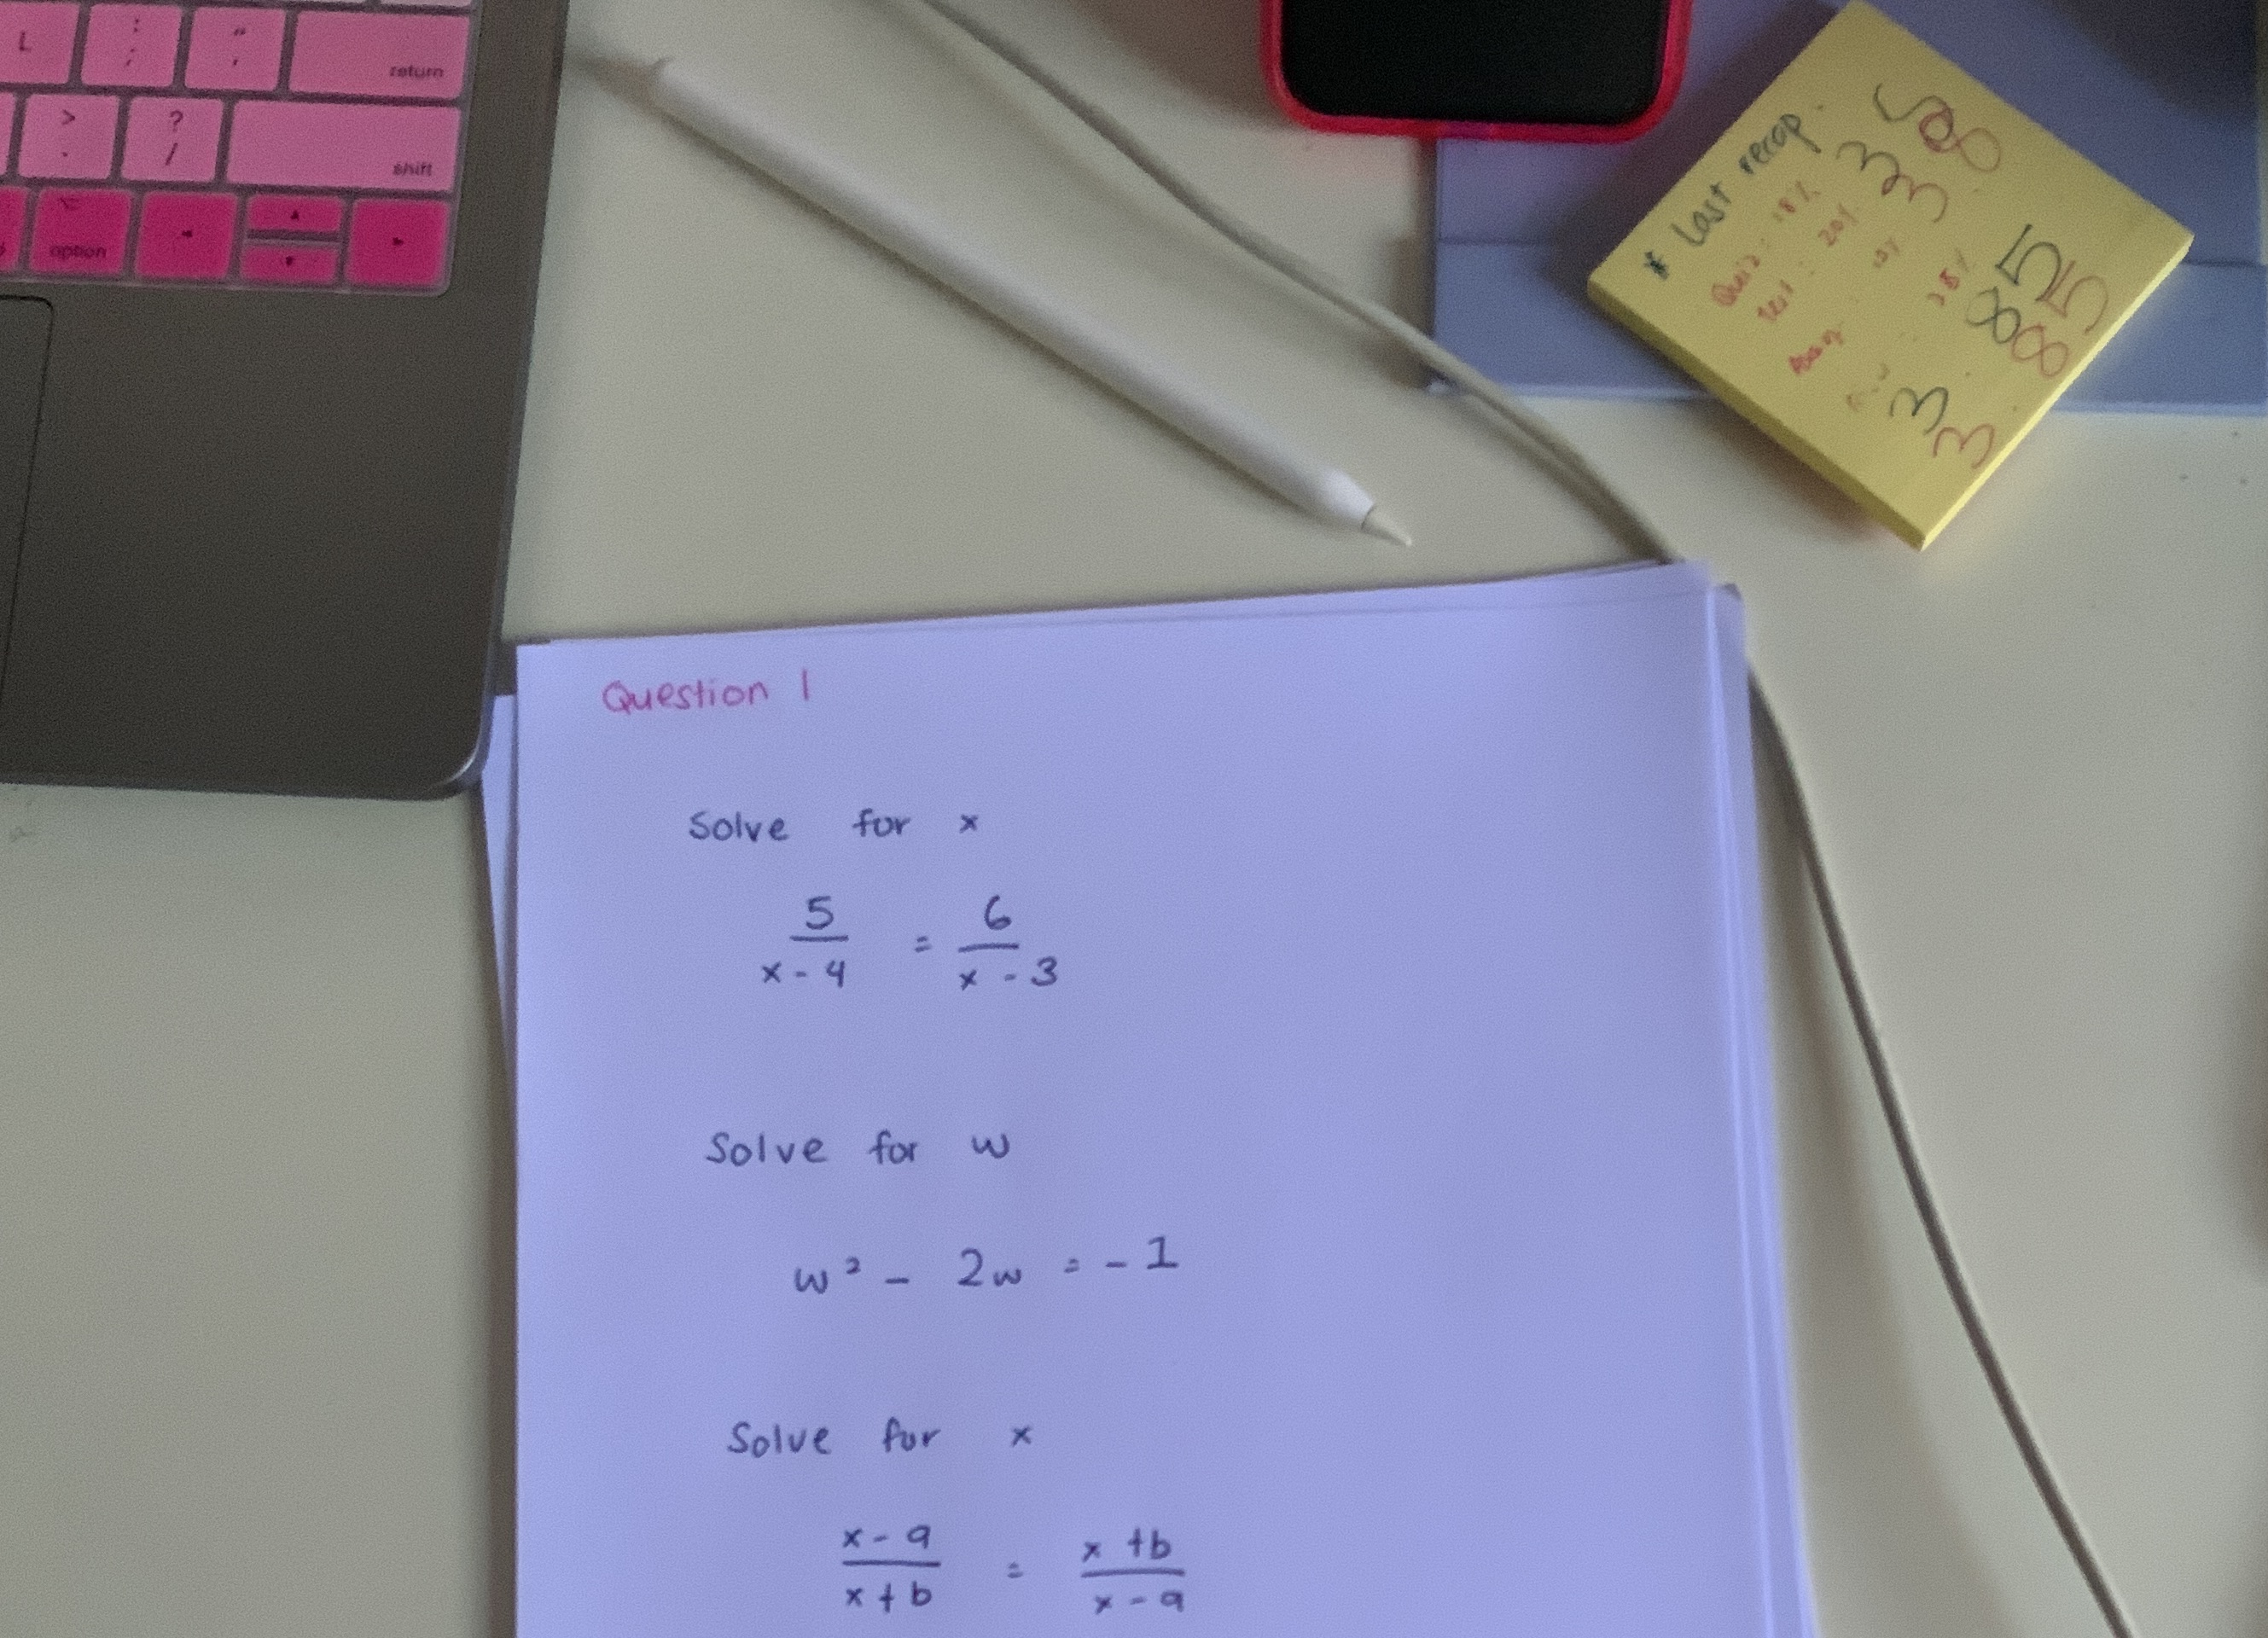 L
: ;
" '
return
> .
? /
shift
option
* Last recap.
Quiz : 18%
test : 20%
508
333
55
888
33
Question 1
Solve for x
5 / x - 4 = 6 / x - 3
Solve for w
w² - 2w = -1
Solve for x
x - a / x + b = x + b / x - a